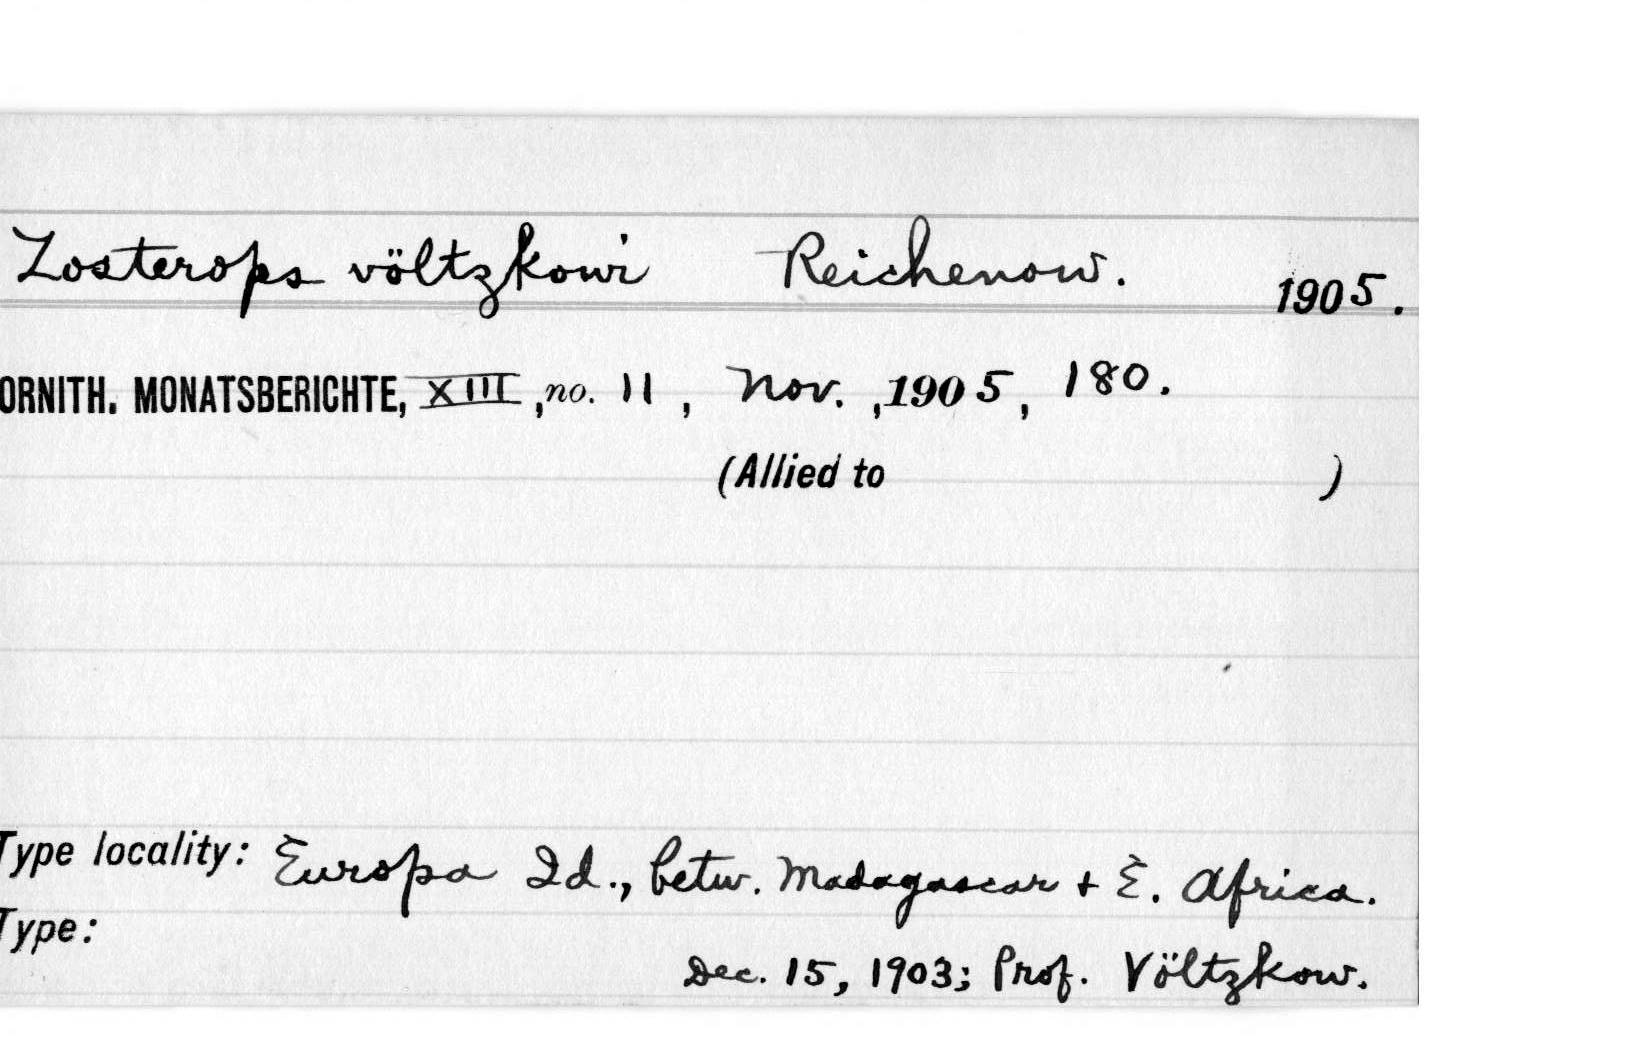 Zosterops völtzkowi Reichenow. 1905.
ORNITH. MONATSBERICHTE, XIII, no. 11, Nov., 1905, 180.
(Allied to )
Type locality: Europa Id., betw. Madagascar + E. Africa.
Type:
Dec. 15, 1903; Prof. Völtzkow.